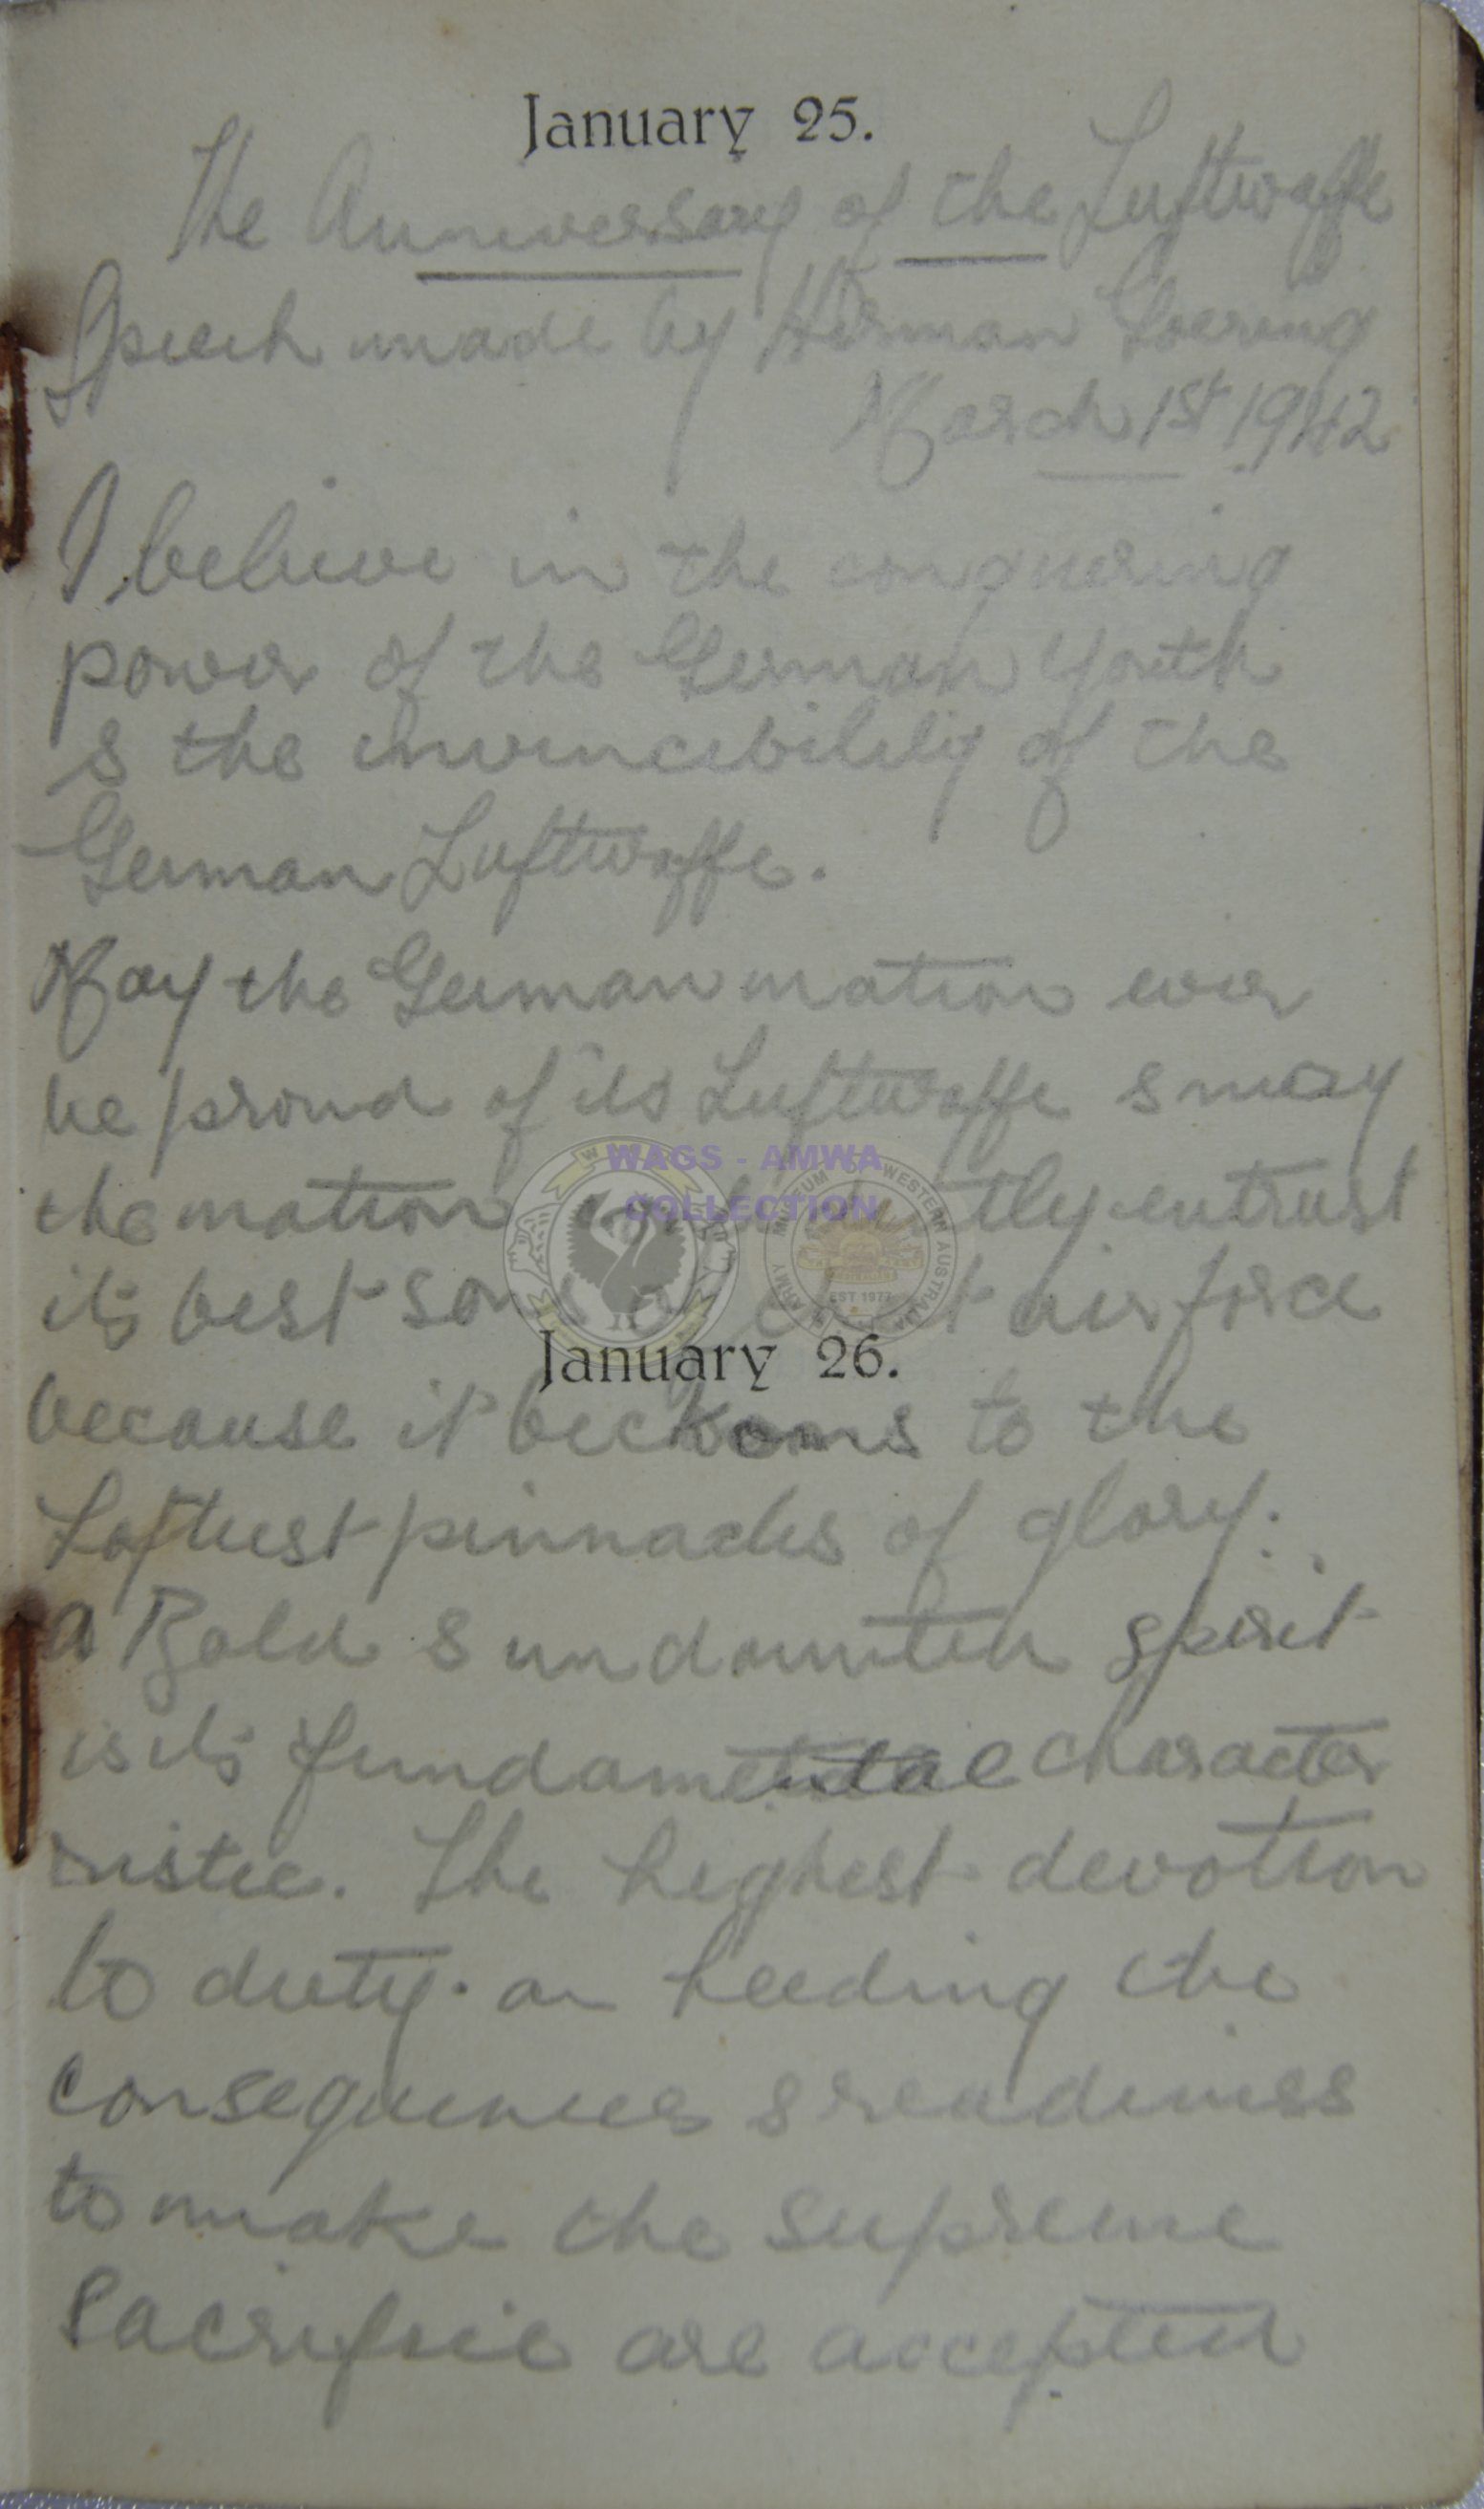 January 25.
The Anniversary of the Luftwaffe
Speech made by Herman Goering
March 1st 1942
I believe in the conquering
power of the German Youth
& the invincibility of the
German Luftwaffe.
May the German nation ever
be proud of its Luftwaffe & may
the nation confidently entrust
its best sons air force
WAGS - AMWA
COLLECTION
ARMY MUSEUM OF WESTERN AUSTRALIA
EST 1977
January 26.
because it beckons to the
Loftiest pinnacles of glory.
a Bold & undaunted spirit
is its fundamental character
ristic. The highest devotion
to duty. an heeding the
consequences & readiness
to make the supreme
Sacrifice are accepted